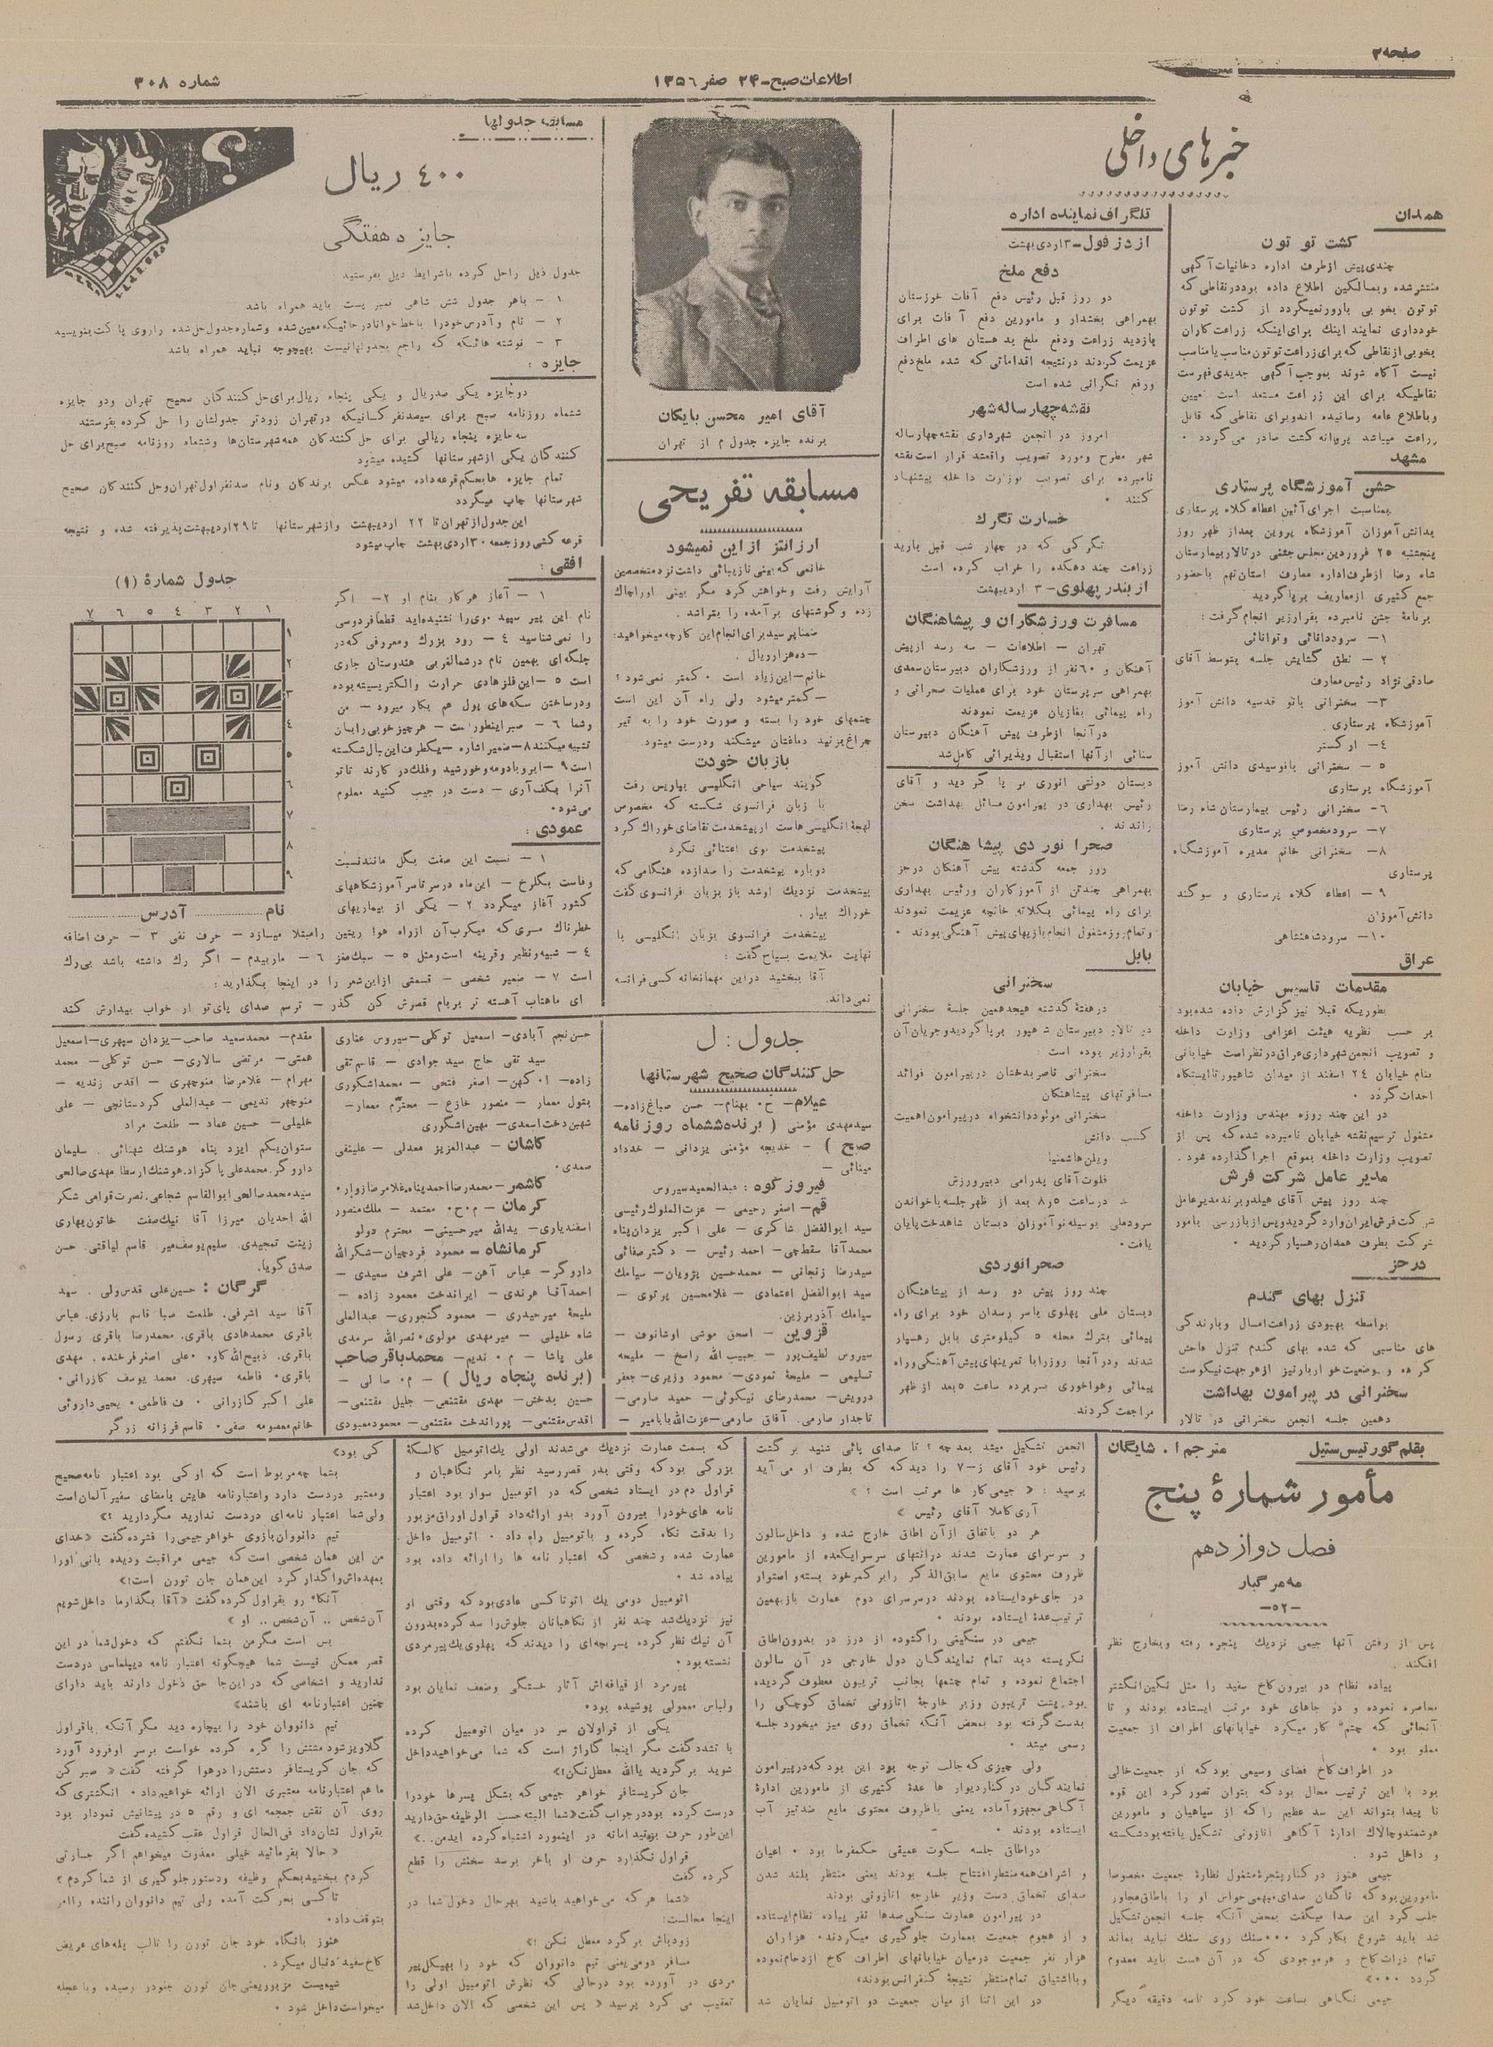 صفحه ۲
اطلاعات صبح - ۲۴ صفر ۱۳۵۶
شماره ۳۰۸
خبرهای داخلی
همدان
کشت توتون
چندی پیش از طرف اداره دخانیات آگهی
منتشر شده و بمالکین اطلاع داده بود در نقاطی که
توتون بخوبی بارور نمیگردد از کشت توتون
خودداری نمایند اینک برای اینکه زراعت کاران
بخوبی از نقاطی که برای زراعت توتون مناسب یا مناسب
نیست آگاه شوند بموجب آگهی جدیدی فهرست
نقاطیکه برای این زراعت مستعد است تعیین
و باطلاع عامه رسانیده اند و برای نقاطی که قابل
زراعت میباشد پروانه کشت صادر می گردد .
مشهد
جشن آموزشگاه پرستاری
بمناسبت اجرای آئین اعطاء کلاه پرستاری
بدانش آموزان آموزشگاه پروین بعد از ظهر روز
پنجشنبه ۲۵ فروردین مجلس جشنی در تالار بیمارستان
شاه رضا از طرف اداره معارف استان نهم با حضور
جمع کثیری از معاریف برپا گردید
برنامۀ جشن نامبرده بقرار زیر انجام گرفت :
۱- سرود دانائی و توانائی
۲- نطق گشایش جلسه بتوسط آقای
صادقی نژاد رئیس معارف
۳- سخنرانی بانو قدسیه دانش آموز
آموزشگاه پرستاری
۴- ارکستر
۵- سخنرانی بانو سیدی دانش آموز
آموزشگاه پرستاری
۶- سخنرانی رئیس بیمارستان شاه رضا
۷- سرود مخصوص پرستاری
۸- سخنرانی خانم مدیره آموزشگاه
پرستاری
۹- اعطاء کلاه پرستاری و سوگند
دانش آموزان
۱۰- سرود شاهنشاهی
عراق
مقدمات تاسیس خیابان
بطوریکه قبلا نیز گزارش داده شده بود
بر حسب نظریه هیئت اعزامی وزارت داخله
و تصویب انجمن شهرداری عراق در نظر است خیابانی
بنام خیابان ۲۴ اسفند از میدان شاهپور تا ایستگاه
احداث گردد .
در این چند روزه مهندس وزارت داخله
مشغول ترسیم نقشه خیابان نامبرده شده که پس از
تصویب وزارت داخله بموقع اجرا گذارده شود .
مدیر عامل شرکت فرش
چند روز پیش آقای هیلدوبرند مدیر عامل
شرکت فرش ایران وارد گردید و پس از بازرسی بامور
شرکت بطرف همدان رهسپار گردید .
درجز
تنزل بهای گندم
بواسطه بهبودی زراعت امسال و بارندگی
های مناسبی که شده بهای گندم تنزل فاحش
کرده و وضعیت خواربار نیز از هر جهت نیکوست
سخنرانی در پیرامون بهداشت
دهمین جلسه انجمن سخنرانی در تالار
تلگراف نماینده اداره
از دزفول - ۳ اردی بهشت
دفع ملخ
دو روز قبل رئیس دفع آفات خوزستان
بهمراهی بخشدار و مامورین دفع آفات برای
بازدید زراعت و دفع ملخ به دهستان های اطراف
عزیمت کردند در نتیجه اقداماتی که شده ملخ دفع
و رفع نگرانی شده است
نقشه چهار ساله شهر
امروز در انجمن شهرداری نقشه چهار ساله
شهر مطرح و مورد تصویب واقع شد قرار است نقشه
نامبرده برای تصویب بوزارت داخله پیشنهاد
کنند .
خسارت تگرگ
تگرگی که در چهار شب قبل بارید
زراعت چند دهکده را خراب کرده است
از بندر پهلوی - ۳ اردیبهشت
مسافرت ورزشکاران و پیشاهنگان
تهران - اطلاعات - سه رسد از پیش
آهنگان و ۶۰ نفر از ورزشکاران دبیرستان سعدی
بهمراهی سرپرستان خود برای عملیات صحرائی و
راه پیمائی بغازیان عزیمت نمودند
در آنجا از طرف پیش آهنگان دبیرستان
سنائی از آنها استقبال و پذیرائی کامل شد
دبستان دولتی انوری برپا گردید و آقای
رئیس بهداری در پیرامون مسائل بهداشت سخن
راندند .
صحرا نوردی پیشاهنگان
روز جمعه گذشته پیش آهنگان درجز
بهمراهی چند تن از آموزکاران و رئیس بهداری
برای راه پیمائی بکلاته خانچه عزیمت نمودند
و تمام روز مشغول انجام بازیهای پیش آهنگی بودند .
بابل
سخنرانی
در هفتۀ گذشته هیجدهمین جلسۀ سخنرانی
در تالار دبیرستان شهپور برپا گردید و جریان آن
بقرار زیر بوده است :
سخنرانی قاصر بدخشان در پیرامون فوائد
مسافرتهای پیشاهنگان
سخنرانی مولود دانشخواه در پیرامون اهمیت
کسب دانش
ویلن هاشمنیا
فلوت آقای پدرامی دبیر ورزش
در ساعت ۵ر۸ بعد از ظهر جلسه با خواندن
سرود ملی بوسیله نوآموزان دبستان شاهدخت پایان
یافت .
صحرانوردی
چند روز پیش دو رسد از پیشاهنگان
دبستان ملی پهلوی یاسر رسدان خود برای راه
پیمائی بترک محله ۵ کیلومتری بابل رهسپار
شدند و در آنجا روز را با تمرینهای پیش آهنگی و راه
پیمائی و هواخوری بسر برده ساعت ۵ بعد از ظهر
مراجعت کردند.
آقای امیر محسن بایگان
برنده جایزه جدول م از تهران
مسابقه تفریحی
ارزانتر از این نمیشود
خانمی که بینی نازیبائی داشت نزد متخصصین
آرایش رفت و خواهش کرد مگر بینی او را چاک
زده و گوشتهای برآمده را بتراشد .
ضمنا پرسید برای انجام این کار چه میخواهید:
- ده هزار ریال .
خانم - این زیاد است . کمتر نمی شود ؟
- کمتر میشود ولی راه آن این است
چشمهای خود را بسته و صورت خود را به تیر
چراغ بزنید دماغتان میشکند و درست میشود.
با زبان خودت
گویند سیاحی انگلیسی بپاریس رفت
با زبان فرانسوی شکسته که مخصوص
لهجۀ انگلیسی هاست از پیشخدمت تقاضای خوراک کرد
پیشخدمت بوی اعتنائی نکرد
دوباره پیشخدمت را صدا زده هنگامی که
پیشخدمت نزدیک او شد باز بزبان فرانسوی گفت
خوراک بیار .
پیشخدمت فرانسوی بزبان انگلیسی با
نهایت ملایمت بسیاح گفت :
آقا ببخشید در این مهمانخانه کسی فرانسه
نمی داند.
مسابقه جدولها
۴۰۰ ریال
جایزه هفتگی
جدول ذیل را حل کرده با شرایط ذیل بفرستید :
۱ - با هر جدول شش شاهی تمبر پست باید همراه باشد
۲ - نام و آدرس خود را با خط خوانا در جائیکه معین شده و شماره جدول حل شده را روی پاکت بنویسید
۳ - نوشته هائیکه که راجع بجدولها نیست بهیچوجه نباید همراه باشد
جایزه :
دو جایزه یکی صد ریال و یکی پنجاه ریال برای حل کنندگان صحیح تهران و دو جایزه
ششماه روزنامه صبح برای سیصد نفر کسانیکه در تهران زودتر جدولشان را حل کرده بفرستند
سه جایزه پنجاه ریالی برای حل کنندگان همه شهرستانها و ششماه روزنامه صبح برای حل
کنندگان یکی از شهرستانها کشیده میشود
تمام جایزه ها بحکم قرعه داده میشود عکس برندگان و نام صد نفر اول تهران و حل کنندگان صحیح
شهرستانها چاپ میگردد
این جدول از تهران تا ۲۲ اردیبهشت و از شهرستانها تا ۲۹ اردیبهشت پذیرفته شده و نتیجه
قرعه کشی روز جمعه ۳۰ اردی بهشت چاپ میشود
افقی :
۱ - آغاز هر کار بنام او ۲ - اگر
نام این پیر سپهبد نوی را نشنیده اید قطعاً فردوسی
را نمی شناسید ۴ - رود بزرگ و معروفی که در
جلگه ای بهمین نام در شمالغربی هندوستان جاری
است ۵ - این فلز هادی حرارت و الکتریسیته بوده
و در ساختن سکه های پول هم بکار میرود - من
و شما ۶ - صبر اینطور است - هر چیز خوبی را بآن
تشبیه میکنند ۸ - ضمیر اشاره - یکطرف این بال شکسته
است ۹ - ابر و باد و مه و خورشید و فلک در کارند تا تو
آنرا بکف آری - دست در جیب کنید معلوم
می شود .
عمودی :
۱ - نسبت این صفت بگل مانند نسبت
وفاست بگلرخ - این ماه در سرتاسر آموزشگاههای
کشور آغاز میگردد ۲ - یکی از بیماریهای
خطرناک مسری که میکرب آن از راه هوا ریتین را مبتلا میسازد - حرف نفی ۳ - حرف اضافه
۴ - شبیه و نظیر و قرینه است و مثل ۵ - سبک مغز ۶ - مار بیدم - اگر رک داشته باشد بی رک
است ۷ - ضمیر شخصی - قسمتی از این شعر را در اینجا بگذارید :
ای ماهتاب آهسته تر بر بام قصرش کن گذر - ترسم صدای پای تو از خواب بیدارش کند
جدول شمارۀ (۱)
۱ ۲ ۳ ۴ ۵ ۶ ۷
۱
۲
۳
۴
۵
۶
۷
۸
۹
نام ........ آدرس ........
جدول : ل
حل کنندگان صحیح شهرستانها
عیلام - ح . بهنام - حسن صباغ زاده -
سید مهدی مؤمنی ( برنده ششماه روزنامه
صبح ) - خدیجه مؤمنی یزدانی - خداداد
مینائی -
فیروزکوه : عبدالحمید سیروس
قم - اصغر رحیمی - عزت الملوک رئیسی
سید ابوالفضل شاکری - علی اکبر یزدان پناه
محمد آقا سقط چی - احمد رئیس - دکتر صفائی
سید رضا زنجانی - محمد حسین پژویان - سیامک
سید ابوالفضل اعتمادی - غلامحسین پرتوی -
سیامک آذر برزین.
قزوین - اسحق موشی اوشانوف -
سیروس لطیف پور - حبیب الله راسخ - ملیحه
تسلیمی - ملیحۀ نمودی - محمود وزیری - جعفر
درویش - محمد رضای نیکوئی - حمید صارمی -
تاجدار صارمی . آفاق صارمی - عزت الله بابامیر -
حسن نجم آبادی - اسمعیل توکلی - سیروس غفاری
سید تقی حاج سید جوادی - قاسم تقی
زاده - ا . کهن - اصغر فتحی - محمد اشکوری
بتول معمار - منصور خازع - محترم معمار -
شهیندخت اسعدی - مهین اشکوری
کاشان - عبدالعزیز معدلی - علینقی
صمدی .
کاشمر - محمد رضا احمد پناه . غلامرضا زوار .
کرمان - م . ح . معتمد - ملک منصور
اسفندیاری - یدالله میرحسینی - محترم دولو
کرمانشاه - محمود فردچیان - شکرالله
داروگر - عباس آهن - علی اشرف سعیدی -
احمد آقا هرندی - ایراندخت محمود زاده -
ملیحۀ میرحیدری - محمود گنجوری - عبدالعلی
شاه خلیلی - میر مهدی مولوی . نصرالله سرمدی
علی پاشا - م . ندیم - محمد باقر صاحب
(برنده پنجاه ریال) - م . صالی -
حسین بدخش - مهدی مقتنعی - جلیل مقتنعی -
اقدس مقتنعی - پوراندخت مقتنعی - محمود معبودی
مقدم - محمد سعید صاحب - یزدان سپهری - اسمعیل
همتی - مرتضی سالاری - حسن توکلی - محمد
مهرام - غلامرضا منوچهری - اقدس زندیه -
منوچهر ندیمی - عبدالعلی کردستانچی - علی
خلیلی - حسین عماد - طلعت مراد
ستوان یکم ایزد پناه هوشنگ شهنائی . سلیمان
داروگر . محمد علی پاکزاد . هوشنگ ارسطا مهدی صالحی
سید محمد صالحی ابوالقاسم شجاعی . نصرت قوامی شکر
الله احدیان میرزا آقا نیک صفت خاتون بهاری
زینت تمجیدی . سلیم یوسف میر . قاسم لیاقتی . حسن
صدق گویا .
گرگان : حسین علی قدس ولی . سید
آقا سید اشرفی . طلعت صبا قاسم بارزی . عباس
باقری محمد هادی باقری . محمد رضا باقری رسول
باقری . ذبیح الله کاوه . علی اصغر فرخنده . مهدی
باقری . فاطمه سپهری . محمد یوسف کازرانی .
علی اکبر کازرانی . ف فاطمی . یحیی داروئی
خانم معصومه صفی . قاسم فرزانه زرگر
بقلم گورتیس ستیل
مترجم ا . شایگان
مأمور شمارۀ پنج
فصل دوازدهم
مه مرگبار
- ۵۲ -
پس از رفتن آنها جیمی نزدیک پنجره رفته و بخارج نظر
افکند .
پیاده نظام در بیرون کاخ سفید را مثل نگین انگشتر
محاصره نموده و در جاهای خود مرتب ایستاده بودند و تا
آنجائی که چشم کار میکرد خیابانهای اطراف از جمعیت
مملو بود .
در اطراف کاخ فضای وسیعی بود که از جمعیت خالی
بود با این ترتیب محال بود که بتوان تصور کرد این قوه
نا پیدا بتواند این سد عظیم را که از سپاهیان و مامورین
هوشمند و چالاک ادارۀ آگاهی اتازونی تشکیل یافته بود شکسته
و داخل شود .
جیمی هنوز در کنار پنجرۀ مشغول نظارۀ جمعیت مخصوصا
مامورین بود که ناگهان صدای مبهمی حواس او را باطاق مجاور
جلب کرد این صدا میگفت بمحض آنکه جلسه انجمن تشکیل
شد باید شروع بکار کرد ... سنگ روی سنگ نباید بماند
تمام ذرات کاخ و هر موجودی که در آن هست باید معدوم
گردد ...»
جیمی نگاهی بساعت خود کرد تا سه دقیقه دیگر
انجمن تشکیل میشد بعد چه ؟ تا صدای پائی شنید برگشت
رئیس خود آقای ز-۷ را دید که بطرف او می آید
پرسید : « جیمی کار ها مرتب است ؟ »
آری کاملا آقای رئیس »
هر دو باتفاق از آن اطاق خارج شده و داخل سالون
و سرسرای عمارت شدند در انتهای سرسرا یکعده از مامورین
ظروف محتوی مایع سابق الذکر را بر کمر خود بسته و استوار
در جای خود ایستاده بودند در سرسرای دوم عمارت باز بهمین
ترتیب عدۀ ایستاده بودند .
جیمی در سنگینی را گشوده از درز در بدرون اطاق
نگریسته دید تمام نمایندگان دول خارجی در آن سالون
اجتماع نموده و تمام چشمها بجانب تریبون معطوف گردیده
بود . پشت تریبون وزیر خارجۀ اتازونی تخماق کوچکی را
بدست گرفته بود بمحض آنکه تخماق روی میز میخورد جلسه
رسمی میشد .
ولی چیزی که جالب توجه بود این بود که در پیرامون
نمایندگان در کنار دیوار ها عدۀ کثیری از مامورین ادارۀ
آگاهی مجهز و آماده یعنی با ظروف محتوی مایع ضد تیز آب
ایستاده بودند .
در اطاق جلسه سکوت عمیقی حکمفرما بود . اعیان
و اشراف همه منتظر افتتاح جلسه بودند یعنی منتظر بلند شدن
صدای تخماق دست وزیر خارجه اتازونی بودند
در پیرامون عمارت سنگی صدها نفر پیاده نظام ایستاده
و از هجوم جمعیت بعمارت جلوگیری میکردند . هزاران
هزار نفر جمعیت در میان خیابانهای اطراف کاخ ازدحام نموده
و با اشتیاق تمام منتظر نتیجۀ کنفرانس بودند»
در این اثنا از میان جمعیت دو اتومبیل نمایان شد
که بسمت عمارت نزدیک می شدند اولی یک اتومبیل کالسکۀ
بزرگی بود که وقتی بدر قصر رسید نظر بامر نگاهبان و
قراول دم در ایستاد شخصی که در اتومبیل سوار بود اعتبار
نامه های خود را بیرون آورد بدو ارائه داد قراول اوراق مزبور
را بدقت نگاه کرده و با تومبیل راه داد . اتومبیل داخل
عمارت شده و شخصی که اعتبار نامه ها را ارائه داده بود
پیاده شد .
اتومبیل دومی یک اتو تاکسی عادی بود که وقتی او
نیز نزدیک شد چند نفر از نگاهبانان جلوش را سد کرده بدرون
آن نیک نظر کرده پسر بچه ای را دیدند که پهلوی یک پیرمردی
نشسته بود .
پیرمرد از قیافه اش آثار خستگی و ضعف نمایان بود
و لباس معمولی پوشیده بود .
یکی از قراولان سر در میان اتومبیل کرده
با تشدد گفت مگر اینجا گاراژ است که شما می خواهید داخل
شوید برگردید یاالله معطل نکن!»
جان کریستافر خواهر جیمی که بشکل پسرها خود را
درست کرده بود در جواب گفت «شما البته حسب الوظیفه حق دارید
این طور حرف بزنید اما نه در اینمورد اشتباه کرده ایدمن..»
قراول نگذارد حرف او باخر برسد سخنش را قطع
کرده گفت
«شما هر که می خواهید باشید بهرحال دخول شما در
اینجا محالست :
زود باش برگرد معطل نکن !»
مسافر دومی یعنی تیم دانووان که خود را بهیکل پیر
مردی در آورده بود در حالی که نظرش اتومبیل اولی را
تعقیب می کرد پرسید « پس این شخصی که الان داخل شد
کی بود»
بشما چه مربوط است که او کی بود اعتبار نامه صحیح
و معتبر در دست دارد و اعتبارنامه هایش بامضای سفیر آلمان است
ولی شما اعتبار نامه ای در دست ندارید مگر دارید !»
تیم دانووان بازوی خواهر جیمی را فشرده گفت «خدای
من این همان شخصی است که جیمی مراقبت و دیده بانی او را
بعهده اش واگذار کرد این همان جان تورن است !»
آنگاه رو بقراول کرده گفت «آقا بگذار ما داخل شویم
آن شخص .. آن شخص .. او »
بس است مگر من بشما نگفتم که دخول شما در این
قصر ممکن نیست شما هیچگونه اعتبار نامه دیپلماسی در دست
ندارید و اشخاصی که در اینجا حق دخول دارند باید دارای
چنین اعتبارنامه ای باشند»
تیم دانووان خود را بیچاره دید مگر آنکه با قراول
گلاویز شود مشتش را گره کرده خواست بر سر او فرود آورد
که جان کریستافر دستش را در هوا گرفته گفت « صبر کن
ما هم اعتبارنامه معتبری الان ارائه خواهیم داد . انگشتری که
روی آن نقش جمجمه ای و رقم ۵ در پیشانیش نمودار بود
بقراول نشان داد فی الحال قراول عقب کشیده گفت
« حالا بفرمائید خیلی معذرت میخواهم اگر جسارتی
کردم ببخشید بحکم وظیفه و دستور جلوگیری از شما کردم ؟
تاکسی بحرکت آمده ولی تیم دانووان راننده را امر
بتوقف داد .
هنوز با نگاه خود جان تورن را تالب پله های عریض
کاخ سفید دنبال میکرد .
شیمیست مزبور یعنی جان تورن جنودر رسیده و با عجله
میخواست داخل شود .